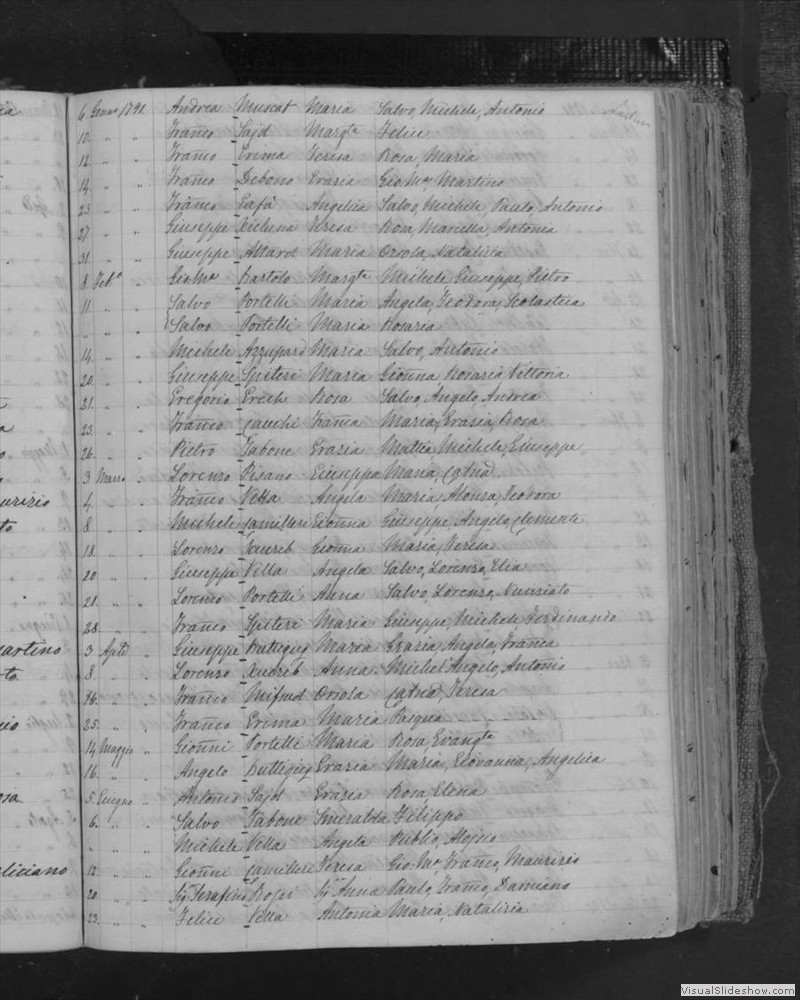 6 Genn.o 1791 Andrea Muscat Maria Salvo, Michele, Antonio
10 " " Franco Sajd Margta Felice
12 " " Franco Grima Teresa Rosa, Maria
14 " " Franco Debono Grazia Gio Ma Martino
25 " " Franco Zafà Angelica Salvo, Michele, Paulo, Antonio
27 " " Giuseppe Xicluna Teresa Rosa, Mariella, Antonia
31 " " Giuseppe Attard Maria Orsola, Natalizia
8 Feb.o " Gio Ma Bartolo Margta Michele, Giuseppe, Pietro
11 " " Salvo Portelli Maria Angela, Teodora, Scolastica
" " Salvo Portelli Maria Rosaria
14 " " Michele Azzupard Maria Salvo, Antonio
20 " " Giuseppe Spiteri Maria Gionna Rosaria Vittoria
21 " " Gregorio Grech Rosa Salvo, Angelo, Andrea
23 " " Franco Cauchi Franca Maria, Grazia, Rosa
26 " " Pietro Tabone Grazia Mattia, Michele, Giuseppe
3 Marzo " Lorenzo Pisano Giuseppa Maria, Catna
4 " " Franco Vella Angela Maria, Aloisa, Teodora
8 " " Michele Camilleri Gionna Giuseppe, Angelo, Clemente
18 " " Lorenzo Xuereb Gionna Maria, Teresa
20 " " Giuseppe Vella Angela Salvo, Lorenzo, Elia
21 " " Lorenzo Portelli Anna Salvo, Lorenzo, Nunziato
28 " " Franco Spiteri Maria Giuseppe, Michele, Ferdinando
3 Aple " Giuseppe Buttigieg Maria Grazia, Angela, Franca
8 " " Lorenzo Xuereb Anna Michel'Angelo, Antonio
16 " " Franco Mifsud Orsola Catna, Teresa
25 " " Franco Grima Maria Pasqua
14 Maggio " Gionni Portelli Maria Rosa, Evangta
16 " " Angelo Buttigieg Grazia Maria, Giovanna, Angelica
5 Giugno " Antonio Sajd Grazia Rosa, Elena
6 " " Salvo Tabone Smeralda Filippo
" " " Michele Vella Angela Publio, Aloiso
12 " " Gionni Camilleri Teresa Gio Ma, Franco, Maurizio
20 " " Sig Serafino Sig Anna Paulo, Franco, Damiano
23 " " Felice Vella Antonia Maria, Natalizia
VisualSlideshow.com